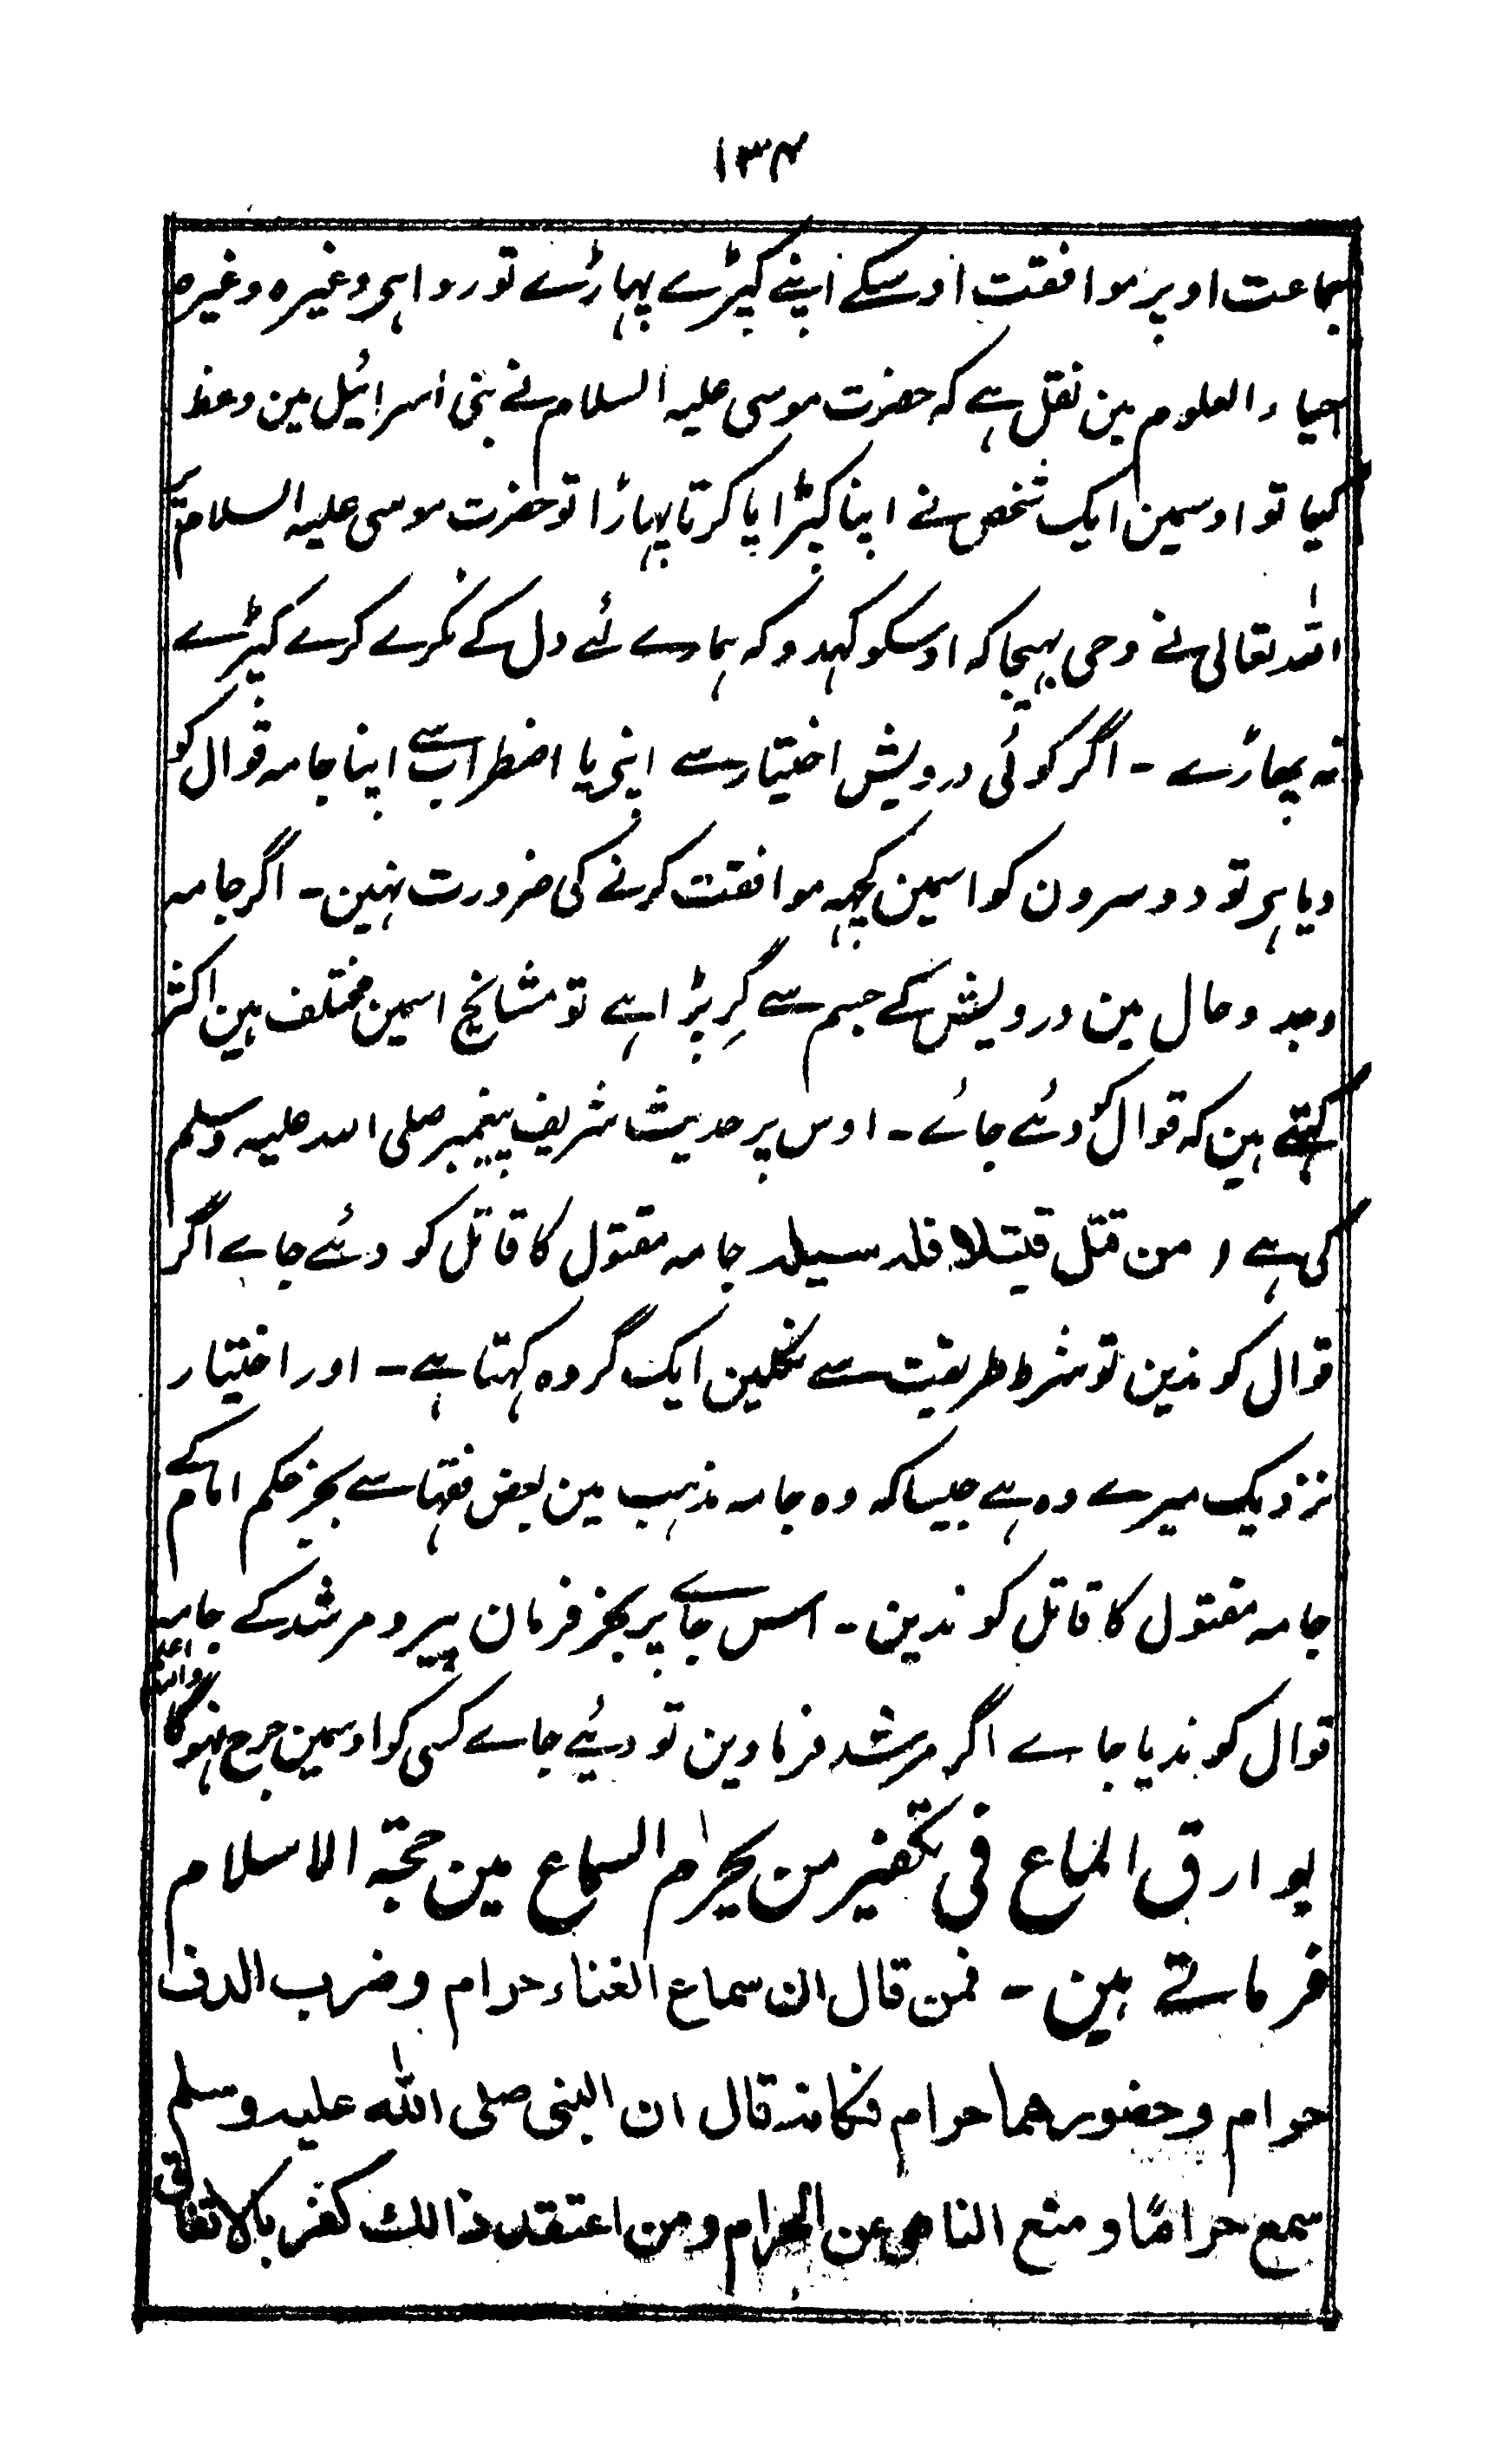 ۱۳۴
جماعت اوپر موافقت اوسکے اپنے کپڑے پہاڑے تو روا ہی وغیرہ وغیرہ
احیاء العلوم مین نقل ہے کہ حضرت موسی علیہ السلام نے بنی اسرائیل مین وعظ
کیا تو اوسمین ایک شخص نے اپنا کپڑا یا کرتا پہاڑا تو حضرت موسی علیہ السلام پر
اللہ تعالی نے وحی بہیجا کہ اوسکو کہدو کہ ہمارے لئے دل کے ٹکرے کرے کپڑے
نہ پھاڑے - اگر کوئی درویش اختیار سے اپنی یا اضطراب سے اپنا جامہ قوال کو
دیا ہی تو دوسرون کو اسمین کچہہ موافقت کرنے کی ضرورت نہین - اگر جامہ
وجد وحال مین درویش کے جسم سے گِر پڑا ہے تو مشایخ اسمین مختلف ہین اکثر
کہتے ہین کہ قوال کو دئے جائے - اوس پر حدیث شریف پیغمبر صلی اللہ علیہ وسلم
کی ہے، من قتل قتیلا فلہ سیلہ جامہ مقتول کا قاتل کو دئے جاے اگر
قوال کو ندین تو شرط طریقت سے نکلین ایک گروہ کہتا ہے - اور اختیار
نزدیک میرے وہ ہے جیسا کہ وہ جامہ مذہب مین بعض فقہا سے بجز حکم امام کے
جامہ مقتول کا قاتل کو ندین - اس جاے پر بجز فرمان پیر و مرشد کے جامہ
قوال کو ندیا جاے اگر مرشد فرماوین تو دیئے جاے کسی کو اوسمین حرج نہوگا واللہ اعلم
بوارق الماع فی تکفیر من یحرم السماع مین حجۃ الاسلام
فرماتے ہین - فمن قال ان سماع الغناء حرام و ضرب الدف
حرام و حضورهما حرام فکانہ قال ان النبی صلی اللہ علیہ وسلم
سمع حرامًا و منع الناس عن الحرام و من اعتقد ذالك کفر بالاتفاق